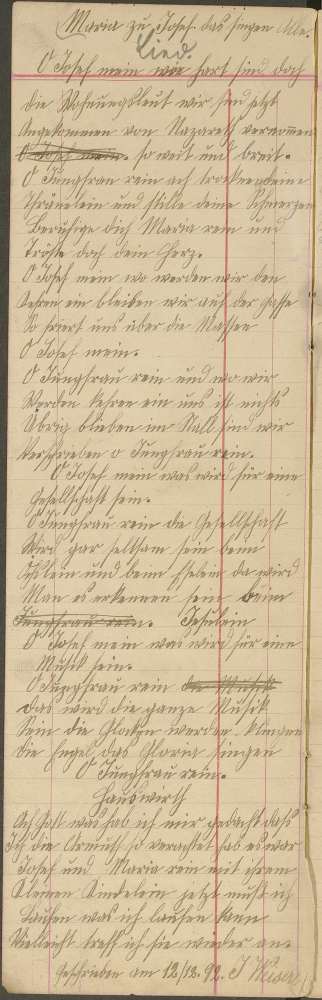 Maria zu Josef das singen Alle.
Lied.
O Josef mein wie hart sind doch
die Wohnungsleut wir sind jetzt
Angekommen von Nazareth vernommen
O Josef mein so weit und breit.
O Jungfrau rein ach trockne deine
Thränelein und stille deine Schmerzen
Beruhige dich Maria rein und
Tröste doch dein Herz.
O Josef mein wo werden wir den
Kehren ein bleiben wir auf der Gasse
So friert uns über die Massen
O Josef mein.
O Jungfrau rein und wo wir
Werden kehren ein uns ist nichts
Übrig blieben im Stall sind wir
Verschrieben o Jungfrau rein.
O Josef mein was wird für eine
Gesellschaft sein.
O Jungfrau rein die Gesellschaft
Wird gar seltsam sein beim
Öchslein und beim Eselein da wird
Man es erkennen sein beim
Jungfrau rein. Jesulein
O Josef mein was wird für eine
Musik sein.
O Jungfrau rein die Musik
das wird die ganze Musik
Sein die Glocken werden klingen
Die Engel das Gloria singen
O Jungfrau rein.
Hauswirth
Ach Gott was hab ich mir gedacht das
Ich die Armuth so verachtet hab es war
Josef und Maria rein mit ihrem
Kleinen Kindelein jetzt muß ich
Laufen was ich laufen kann
Vielleicht treff ich sie wieder an.
Geschrieben am 12/12. 92. J